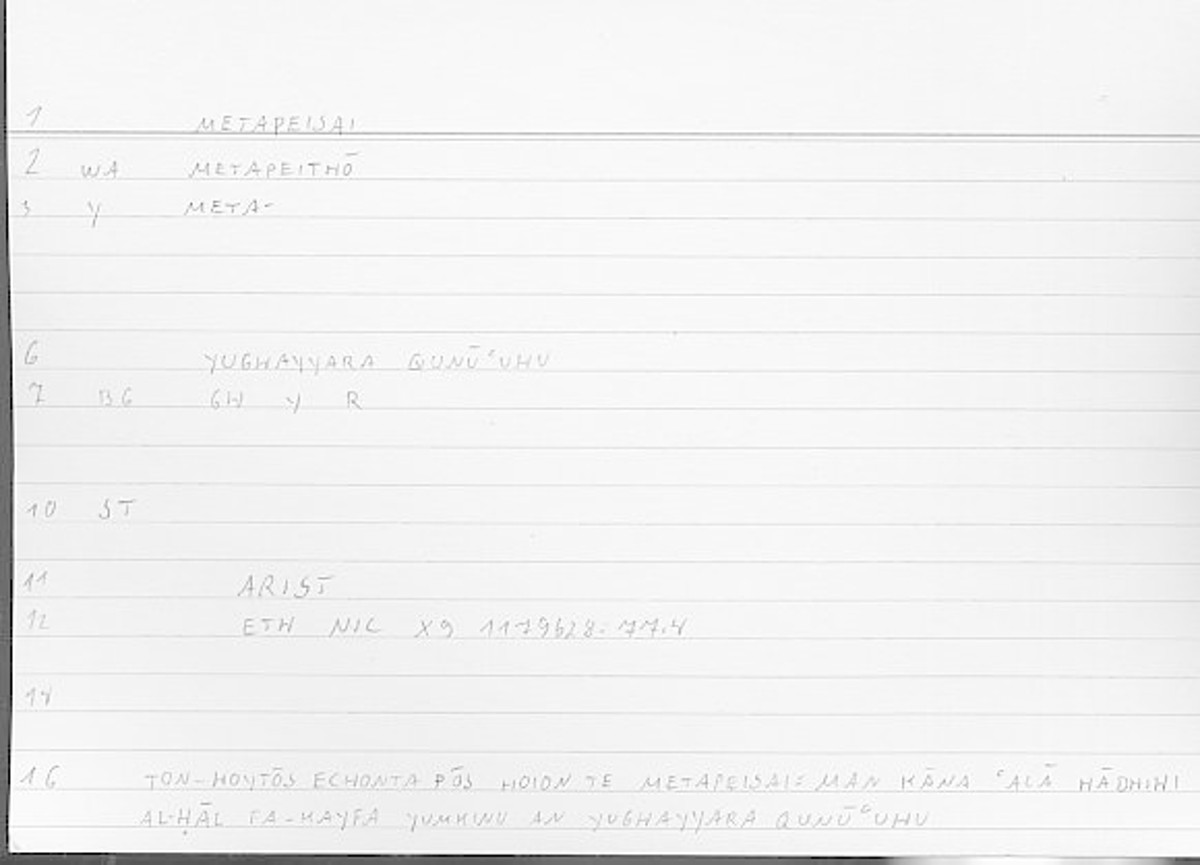 1 METAPEISAI
2 WA METAPEITHŌ
3 Y META-
6 YUGHAYYARA QUNŪʿUHU
7 BG GH Y R
10 ST
11 ARIST
12 ETH NIC X9 1179b28: 77.4
14
16 TON-HOYTŌS ECHONTA PŌS HOION TE METAPEISAI: MAN KĀNA ʿALĀ HĀDHIHI
AL-ḤĀL FA-KAYFA YUMKINU AN YUGHAYYARA QUNŪʿUHU